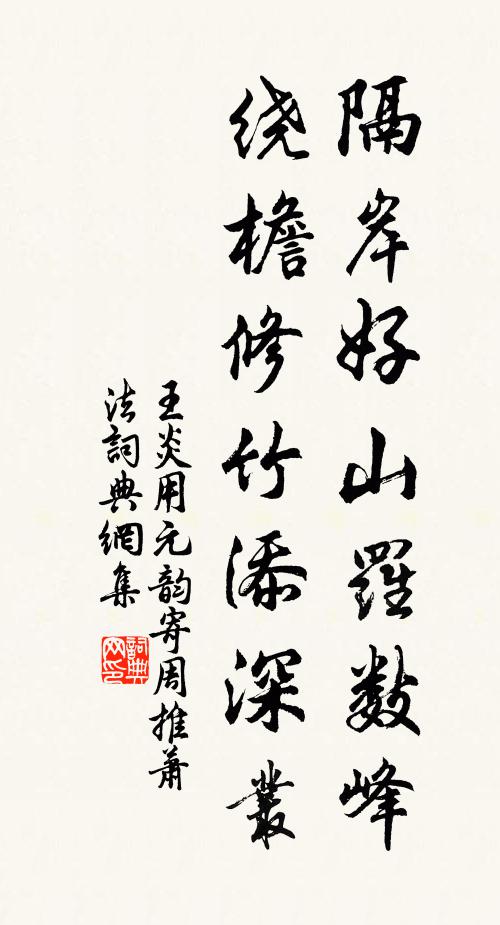 隔岸好山羅數峰
绕檐修竹添深叢
王炎用元韵寄周推蕭
法詞典網集
詞典網印